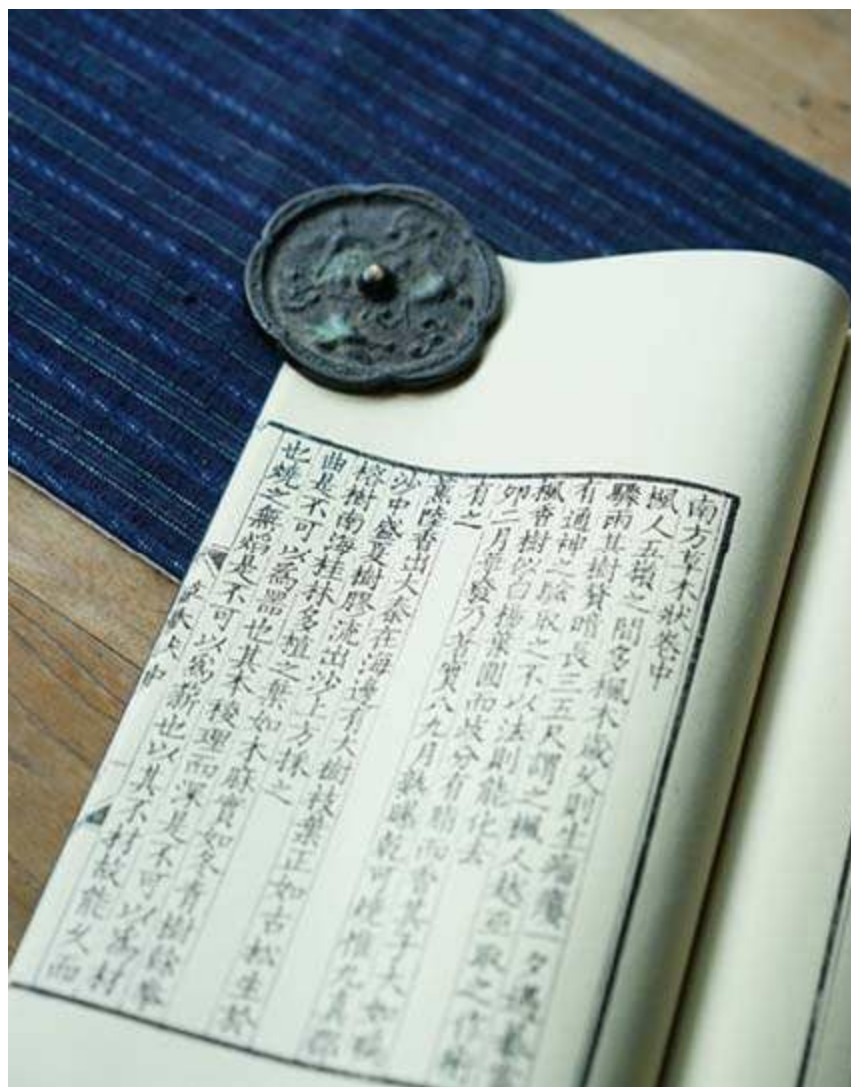 南方草木狀卷中
楓人五嶺之間多楓木歲久則生瘤癭一夕遇暴雷
驟雨其樹贅暗長三五尺謂之楓人越巫取之作術
有通神之驗取之不以法則能化去
楓香樹似白楊葉圓而歧分有脂而香其子大如鴨
卵二月華發乃著實八九月熟曝乾可燒惟九真郡
有之
薰陸香出大秦在海邊有大樹枝葉正如古松生於
沙中盛夏樹膠流出沙上方採之
榕樹南海桂林多植之葉如木麻實如冬青樹榦拳
曲是不可以爲器也其木棱理而深是不可以爲材
也燒之無焰是不可以爲薪也以其不材故能久而